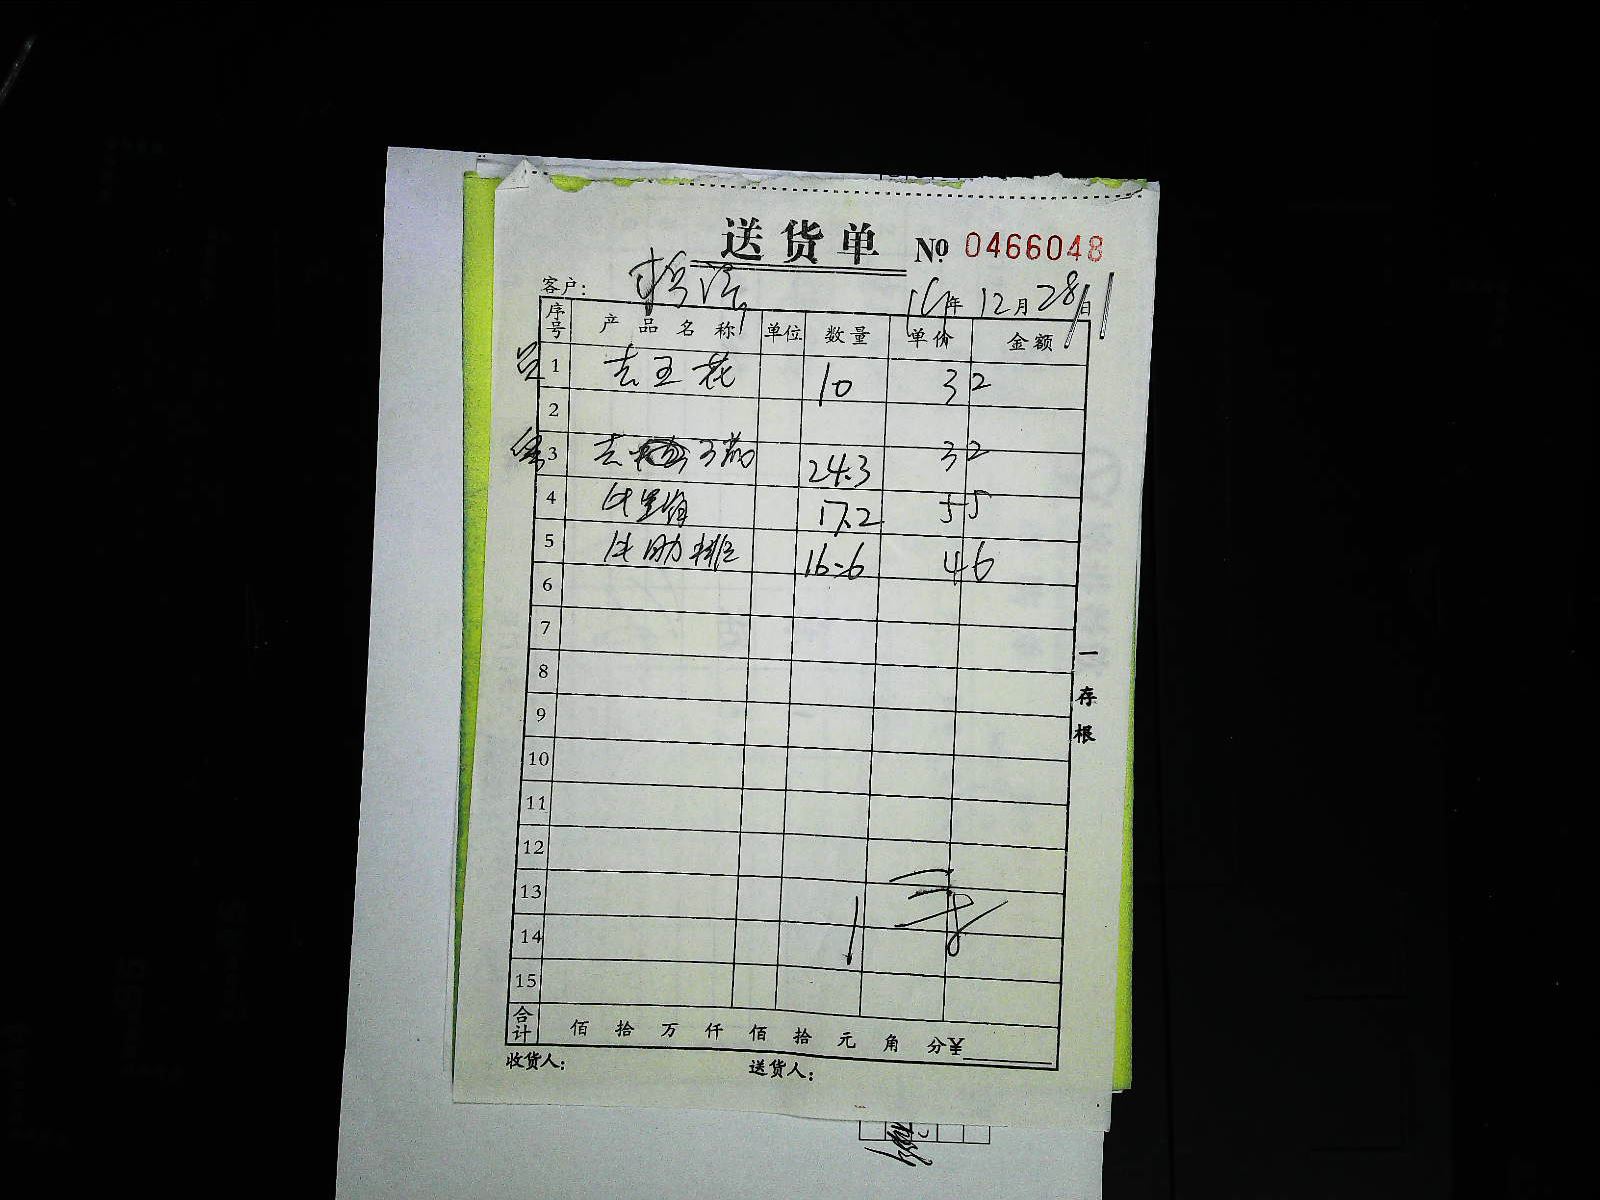 送货单 № 0466048
客户: 16年12月28日
序号 产品名称 单位 数量 单价 金额
1 去王花 10 32
2
3 去 24.3 32
4 17.2 55
5 牛肋排 16.6 46
6
7
8
9
10
11
12
13
14
15
合计 佰 拾 万 仟 佰 拾 元 角 分 ¥
收货人: 送货人:
一存根